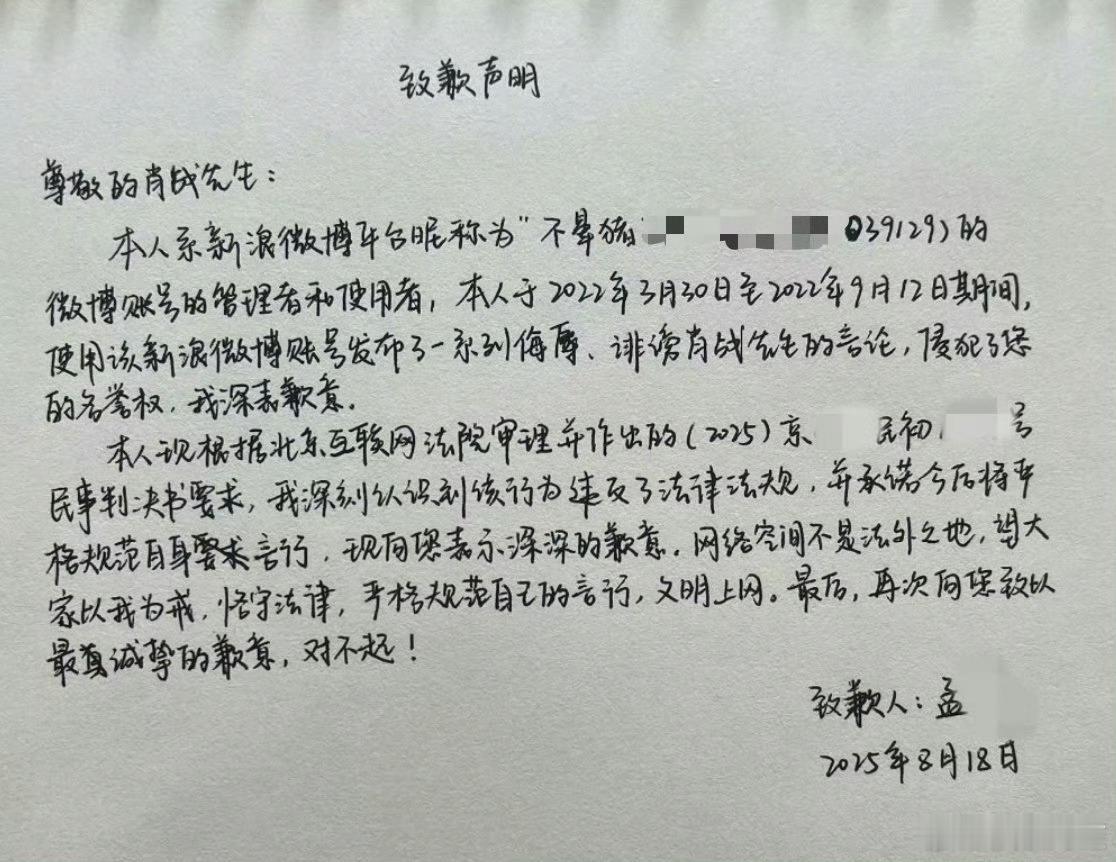 致歉声明
尊敬的肖战先生：
本人系新浪微博平台昵称为“不晕猪 039129)的
微博账号的管理者和使用者，本人于2022年3月30日至2022年9月12日期间，
使用该新浪微博账号发布了一系列侮辱、诽谤肖战先生的言论，侵犯了您
的名誉权，我深表歉意。
本人现根据北京互联网法院审理并作出的(2025)京 民初 号
民事判决书要求，我深刻认识到该行为违反了法律法规，并承诺今后将严
格规范自身要求言行，现向您表示深深的歉意。网络空间不是法外之地，望大
家以我为戒，恪守法律，严格规范自己的言行，文明上网。最后，再次向您致以
最真诚挚的歉意，对不起！
致歉人：孟
2025年8月18日